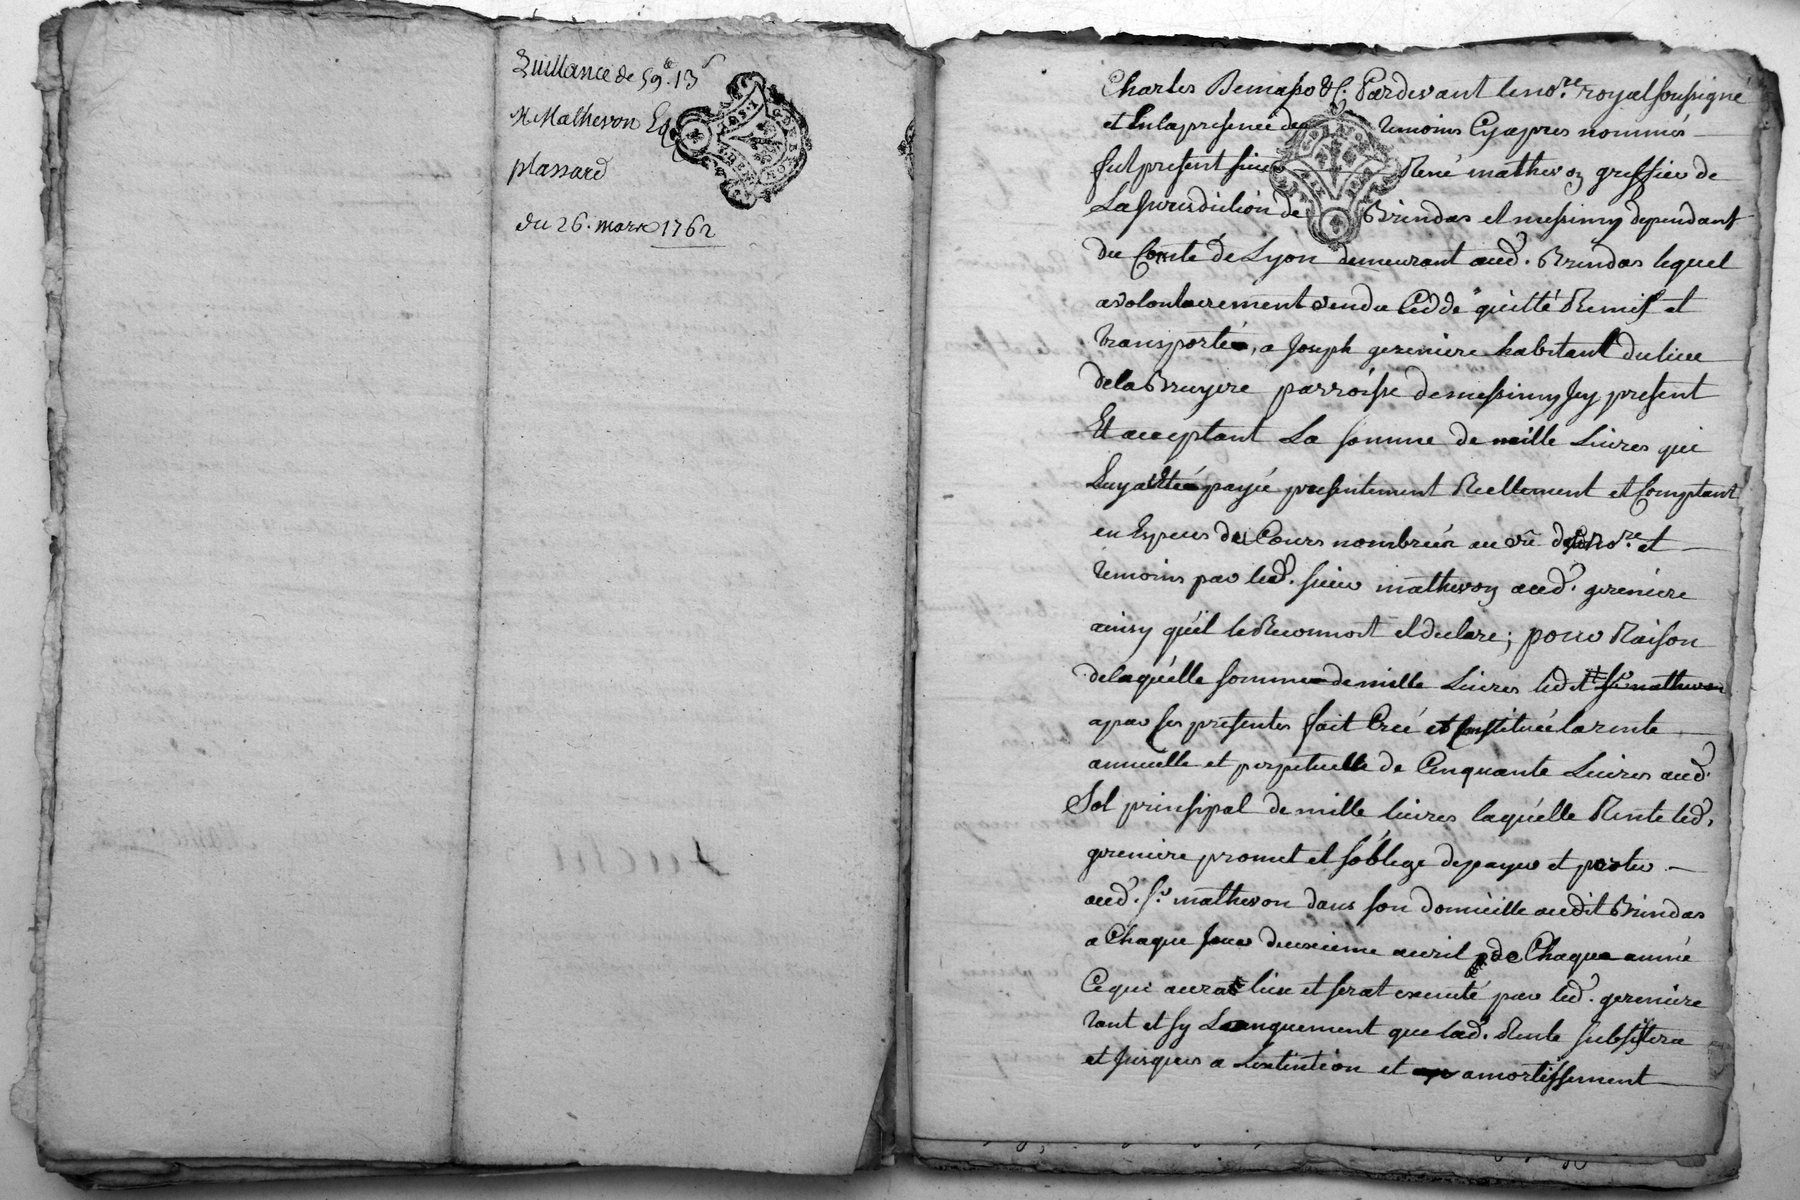 Quittance de 59.ᵗᵗ 13ˢ
Mathevon
plassard
du 26. mars 1762
Charles &c. Pardevant le no.re royal soussigné
et En la presence des temoins Cy apres nommés
fut present sieur René mathevon greffier de
La Jurisdiction de Brindas et messimy dependant
du Comté de Lyon demeurant aud. Brindas lequel
a volontairement vendu Cèddé quitté Remis et
transporté, a Joseph gereniere habitant du lieu
de la Bruyere parroisse de messimy Jcy present
Et acceptant La somme de mille Livres qui
Luy a Eté payé presentement Réellement et Comptant
en Especes du Cours nombrées au vû dud no.re et
temoins par led. sieur mathevon aud. gereniere
ainsy qu'il le Reconnoit et declare; pour Raison
de laquelle somme de mille Livres ledit Sr mathevon
a par ses presentes fait Créé et Constitué la rente
annuelle et perpetuelle de Cinquante Livres aud.
Sol prinsipal de mille livres laquelle Rente led.
gereniere promet et s'oblige de payer et porter
aud. Sr mathevon dans son domicille audit Brindas
a Chaque Jour deuxieme avril de Chaque année
Ce qui aurat lieu et serat executé par led. gereniere
tant et sy Longuement que lad. Rente subsistera
et Jusques a Lextintion et amortissement